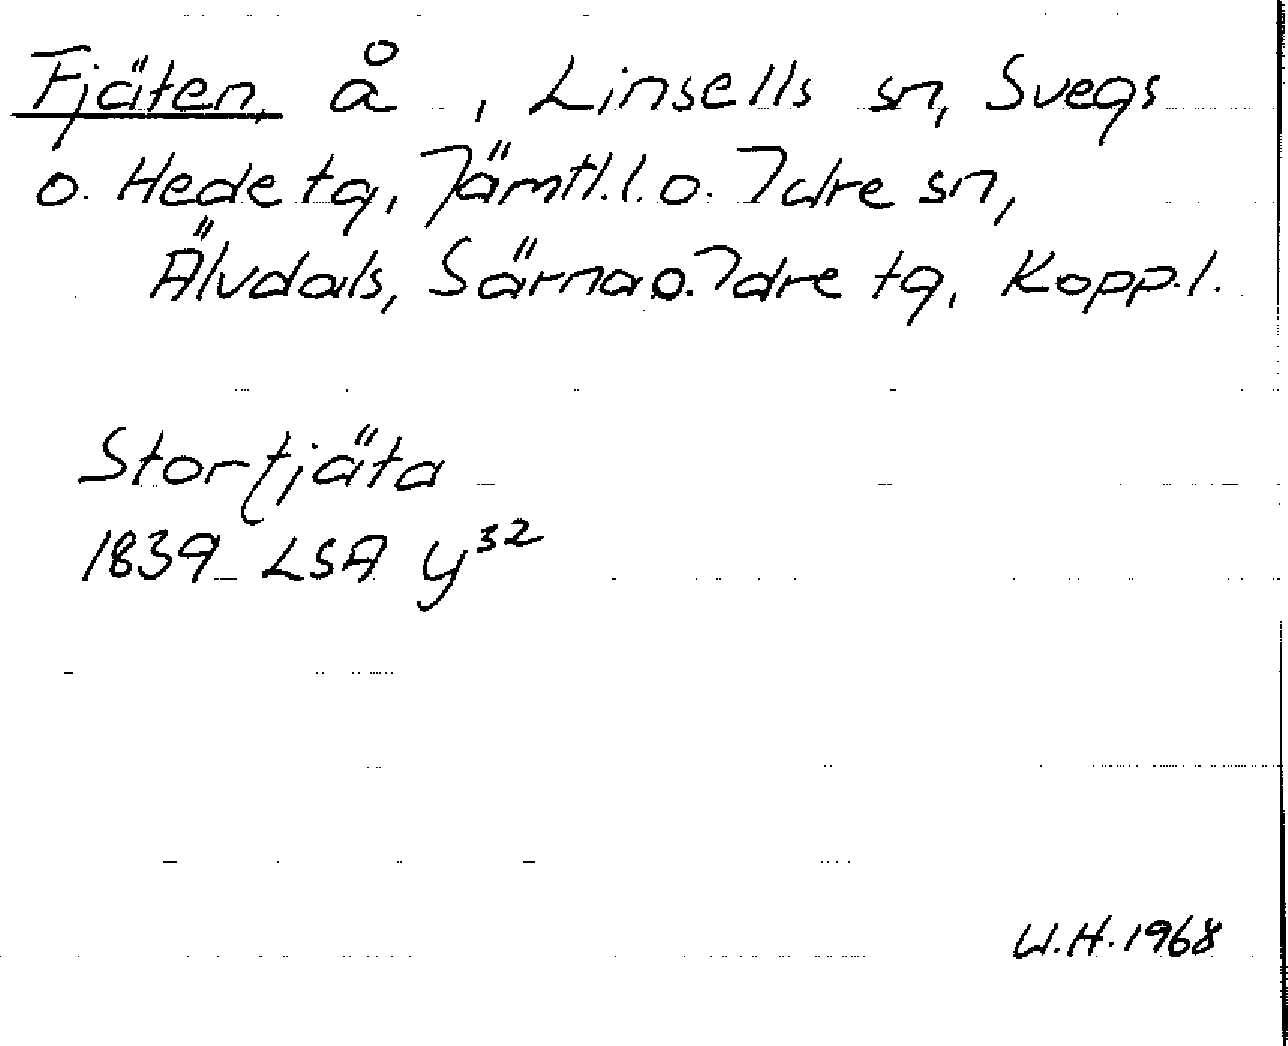 Fjäten, å, Linsells sn, Svegs
o. Hede tg, Jämtl.l. o. Idre sn,
Älvdals, Särna o. Idre tg, Kopp.l.
Storfjäta
1839 LSA y³²
W.H. 1968